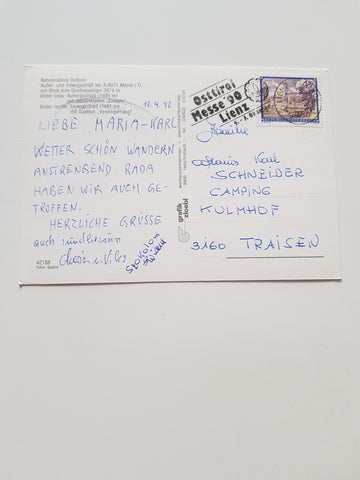 Naturerlebnis Osttirol
Außer- und Innergschlöß bei A-9971 Matrei i.O.
mit Blick zum Großvenediger 3674 m
Bilder links: Außergschlöß (1695 m)
Bilder rechts: Innergschlöß (1688 m)
mit Gasthof „Venedigerhaus"
18.4.90
LIEBE MARIA-KARL
WETTER SCHÖN WANDERN
ANSTRENGEND. RADA
HABEN WIR AUCH GE-
TROFFEN.
HERZLICHE GRÜSSE
auch
42188
Foto: Baptist
grafik
zloebl
Osttirol
Messe '90
Lienz
Familie
Karl
SCHNEIDER
CAMPING
KULMHOF
3160 TRAISEN